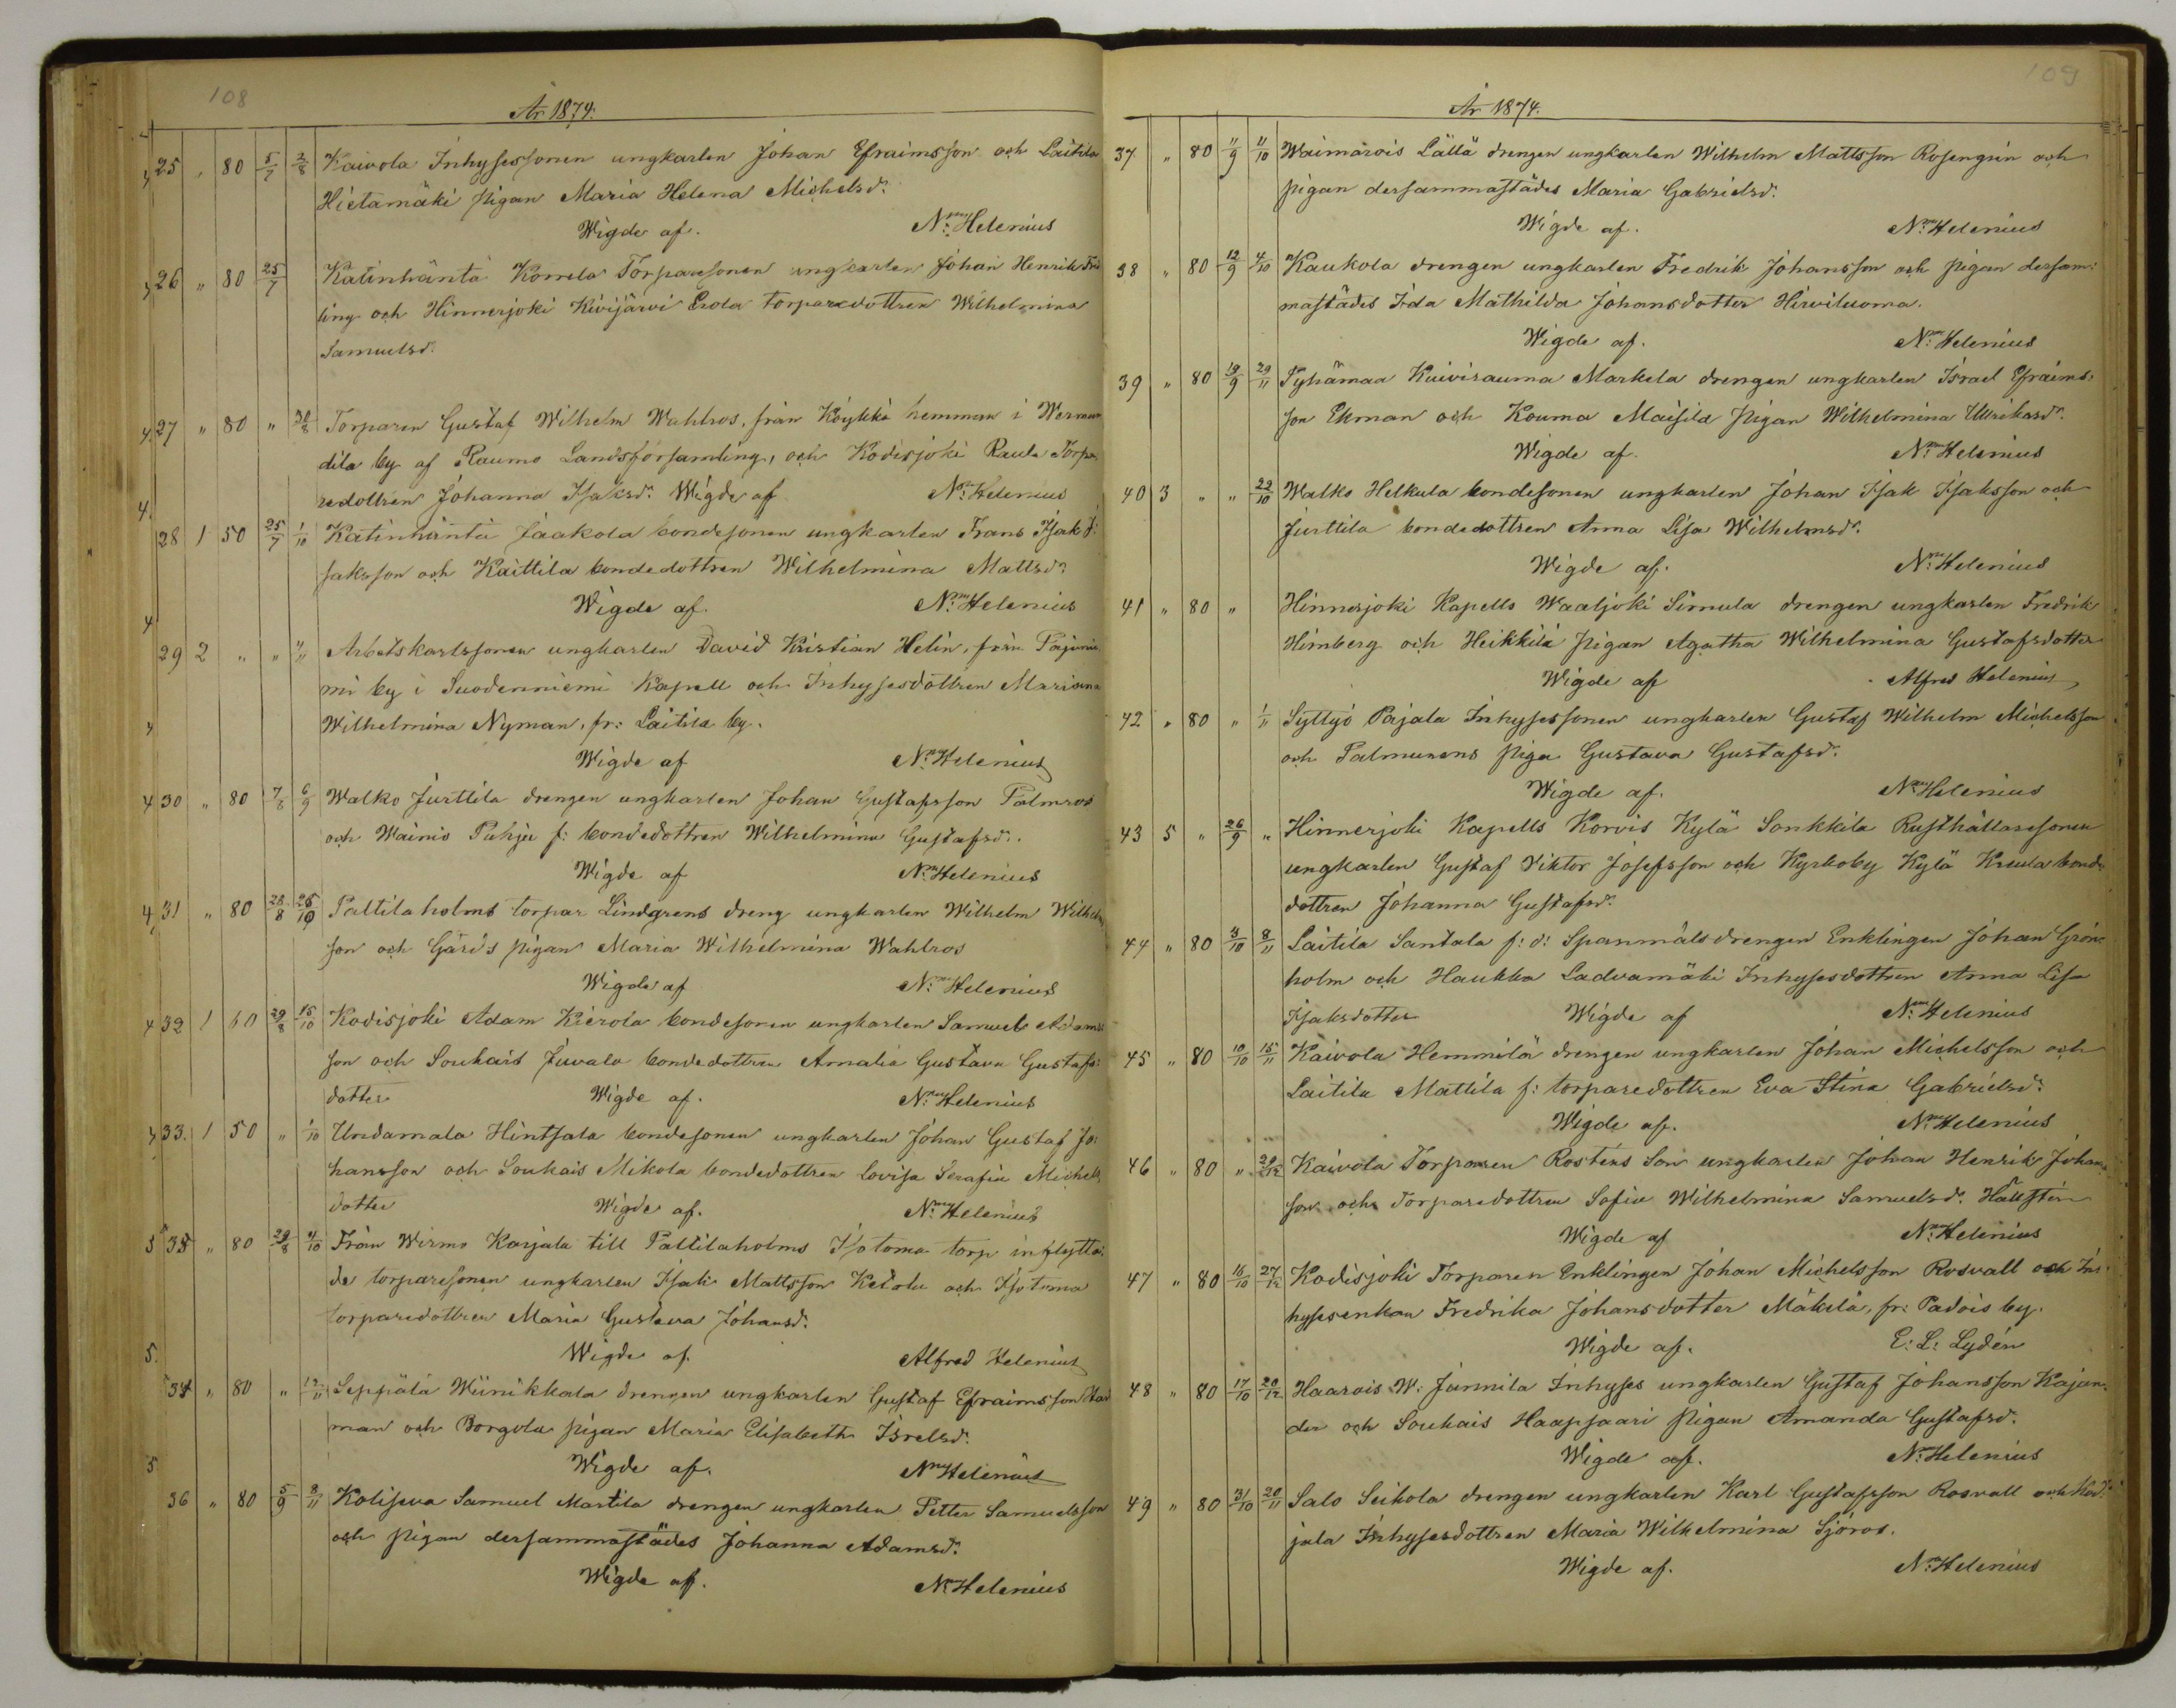 108
År 1874.
25 " 80 5/7 2/8 Kaivola Inhysessonen ungkarlen Johan Efraimsson och Laitila
Hietamäki pigan Maria Helena Michelsd:
Wigde af. N:m Helenius
26 " 80 25/7 Katinhäntä Korrela Torparesonen ungkarlen Johan Henrik
ling och Hinnerjoki Kivijärvi Erola torparedottren Wilhelmina
Samuelsd:
27 " 80 " 30/8 Torparen Gustaf Wilhelm Wahlros, från Köykkä hemman i
dila by af Raumo Landsförsamling, och Kodisjoki Raula Torpa
redottren Johanna Isaksd: Wigde af N:m Helenius
28 1 50 25/7 1/10 Katinhäntä Jaakola bondesonen ungkarlen Frans Isak I:
saksson och Kaittila bondedottren Wilhelmina Mattsd:
Wigde af N:m Helenius
29 2 " " "/11 Arbetskarlssonen ungkarlen David Kristian Helin, från
mi by i Suodenniemi Kapell och Inhysesdottren Mariana
Wilhelmina Nyman, fr: Laitila by.
Wigde af N:m Helenius
30 " 80 7/8 6/9 Walko Jurttila drengen ungkarlen Johan Gustafsson Palmros
och Wainio Puhju f: bondedottren Wilhelmina Gustafsd:.
Wigde af N:m Helenius
31 " 80 28/8 25/10 Palttilaholms torpar Lindgrens dreng ungkarlen Wilhelm Wilhelm
son och Gäris pigan Maria Wilhelmina Wahlros
Wigde af N:m Helenius
32 1 60 29/8 15/10 Kodisjoki Adam Kierola bondesonen ungkarlen Samuel Adams
son och Soukais Juvala bondedottren Amalia Gustava Gustafs:
dotter Wigde af. N:m Helenius
33. 1 50 " 1/10 Undamala Hintsala bondesonen ungkarlen Johan Gustaf Jo:
hansson och Soukais Mikola bondedottren Lovisa Serafia Michels
dotter Wigde af. N:m Helenius
35 " 80 29/8 4/10 Från Wirmo Karjala till Palttilaholms Isotoma torp inflytta:
de torparesonen ungkarlen Isak Mattsson Ketola och Isotoma
torparedottren Maria Gustava Johansd:
Wigde af. Alfred Helenius
34 " 80 " 12/11 Seppälä Wiinikkala drengen ungkarlen Gustaf Efraimsson
man och Borgola pigan Maria Elisabeth Isrelsd:
Wigde af. N:m Helenius
36 " 80 5/9 8/11 Kolijeva Samuel Marttila drengen ungkarlen Petter Samuelsson
och pigan dersammastädes Johanna Adamsd:
Wigde af. N:m Helenius
109
År 1874.
37 " 80 11/9 11/10 Waimarois Lällä drengen ungkarlen Wilhelm Mattsson Rosengrén och
pigan dersammastädes Maria Gabrielsd:
Wigde af. N:m Helenius
38 " 80 12/9 4/10 Kaukola drengen ungkarlen Fredrik Johansson och pigan dersam:
mastädes Ida Mathilda Johansdotter Hirviluoma.
Wigde af. N:m Helenius
39 " 80 19/9 29/11 Pyhämaa Kuivirauma Markela drengen ungkarlen Israel Efraims:
son Ekman och Kouma Maisila pigan Wilhelmina Ulrikasd:
Wigde af. N:m Helenius
40 3 " " 22/10 Walko Helkula bondesonen ungkarlen Johan Isak Isaksson och
Jurttila bondedottren Anna Lisa Wilhelmsd:
Wigde af. N:m Helenius
41 " 80 " Hinnerjoki Kapells Waaljoki Simula drengen ungkarlen Fredrik
Himberg och Heikkilä pigan Agatha Wilhelmina Gustafsdotter
Wigde af Alfred Helenius
42 " 80 " 1/11 Syttyö Pajala Inhysessonen ungkarlen Gustaf Wilhelm Michelsson
och Palmurens piga Gustava Gustafsd:
Wigde af. N:m Helenius
43 5 " 26/9 " Hinnerjoki Kapells Korvis Kylä Sonkkila Rusthållaresonen
ungkarlen Gustaf Viktor Josefsson och Kyrkoby Kylä Kreula bonde
dottren Johanna Gustafsd:
44 " 80 3/10 8/11 Laitila Santala f: d: Spanmålsdrengen Enklingen Johan Grön:
holm och Haukka Ladvamäki Inhysesdottren Anna Lisa
Isaksdotter Wigde af N:m Helenius
45 " 80 10/10 15/11 Kaivola Hemmilä drengen ungkarlen Johan Michelsson och
Laitila Mattila f: torparedottren Eva Stina Gabrielsd:
Wigde af. N:m Helenius
46 " 80 " 20/12 Kaivola Torparen Rosténs Son ungkarlen Johan Henrik Johans
son och Torparedottren Sofia Wilhelmina Samuelsd: Hällstén
Wigde af N:m Helenius
47 " 80 16/10 27/12 Kodisjoki Torparen Enklingen Johan Michelsson Rosvall och In:
hysesenkan Fredrika Johansdotter Mäkelä, fr: Padois by.
Wigde af. E: L: Lydén
48 " 80 17/10 20/12 Haarois W: Junnila Inhyses ungkarlen Gustaf Johansson Kajan:
der och Soukais Haapsaari pigan Amanda Gustafsd:
Wigde af. N:m Helenius
49 " 80 31/10 20/11 Salo Seikola drengen ungkarlen Karl Gustafsson Rosvall och Kod:
jala Inhysesdottren Maria Wilhelmina Sjöros.
Wigde af. N:m Helenius